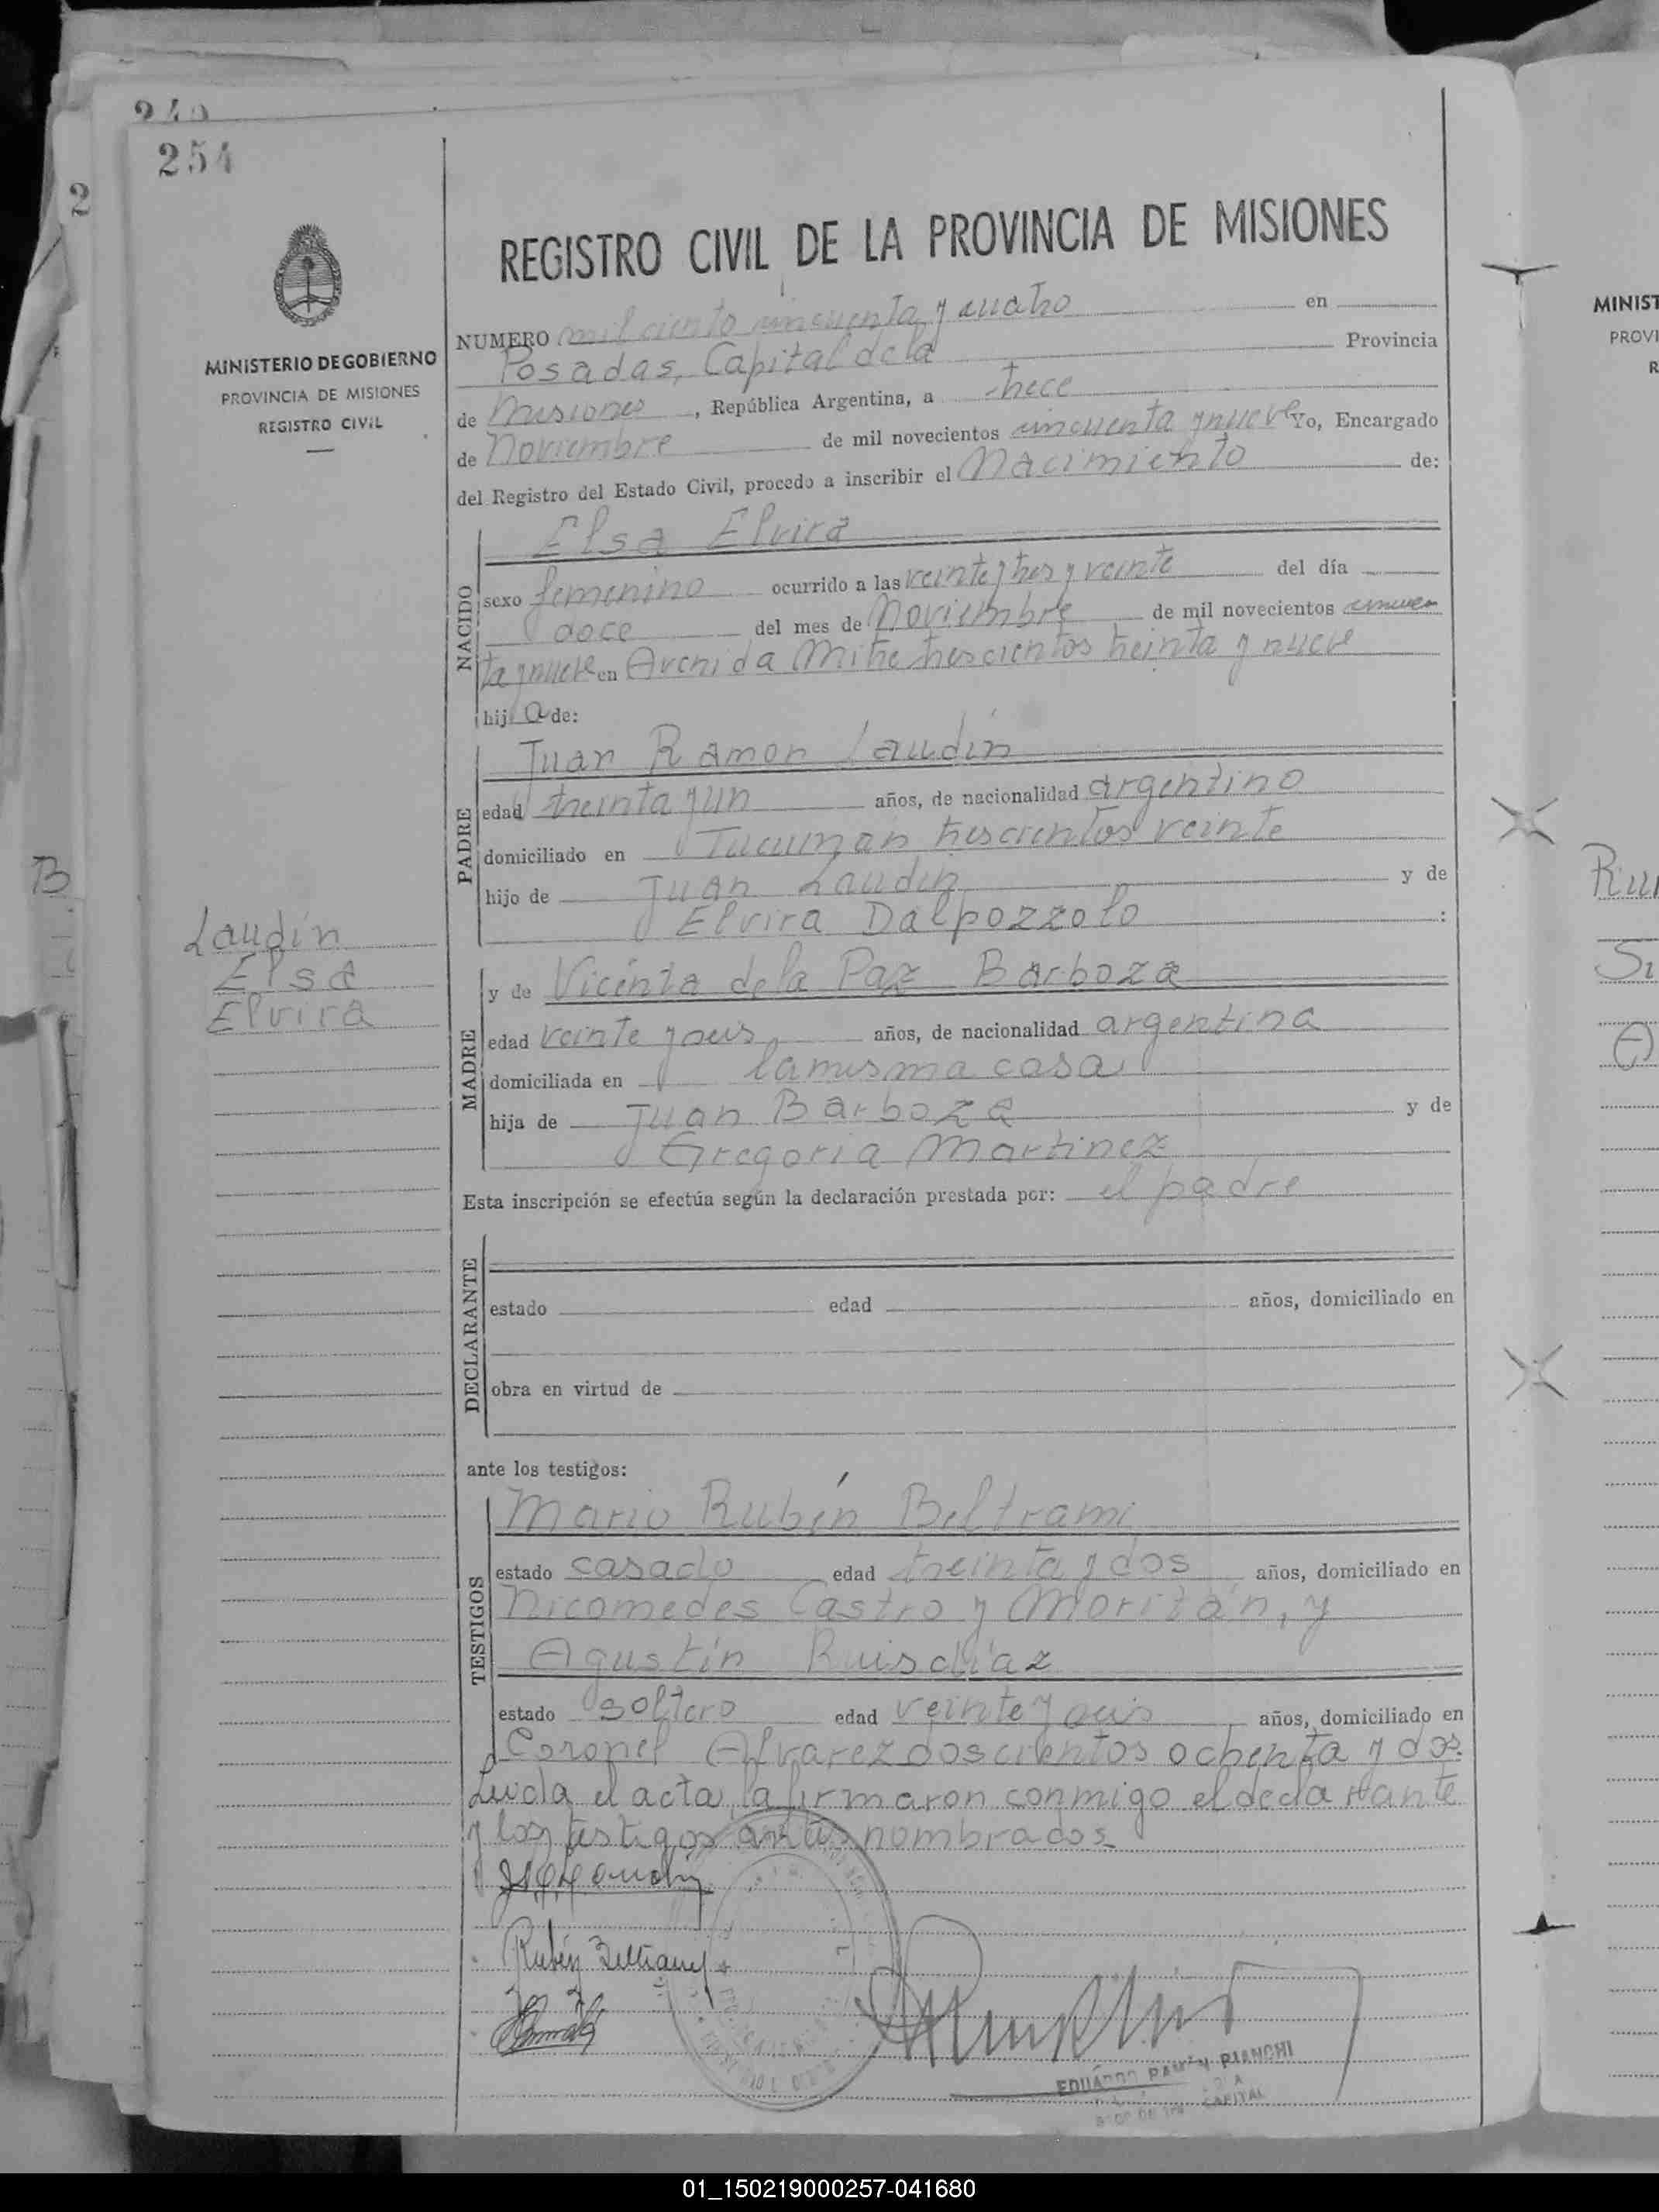 240
254
2
MINISTERIO DE GOBIERNO
PROVINCIA DE MISIONES
REGISTRO CIVIL
REGISTRO CIVIL DE LA PROVINCIA DE MISIONES
NUMERO mil ciento cincuenta y cuatro en
Posadas, Capital de la Provincia
de Misiones, República Argentina, a trece
de Noviembre de mil novecientos cincuenta y nueve Yo, Encargado
del Registro del Estado Civil, procedo a inscribir el Nacimiento de:
NACIDO
Elsa Elvira
sexo femenino ocurrido a las veinte y tres y veinte del día
doce del mes de Noviembre de mil novecientos cincuen
ta y nueve en Avenida Mitre trescientos treinta y nueve
hija de:
PADRE
Juan Ramon Laudin
edad treinta y un años, de nacionalidad argentino
domiciliado en Tucuman trescientos veinte
hijo de Juan Laudin y de
Elvira Dalpozzolo :
B
Laudín
Elsa
Elvira
MADRE
y de Vicenta de la Paz Barboza
edad veinte y seis años, de nacionalidad argentina
domiciliada en la misma casa
hija de Juan Barboza y de
Gregoria Martinez
Esta inscripción se efectúa según la declaración prestada por: el padre
DECLARANTE
estado edad años, domiciliado en
obra en virtud de
ante los testigos:
TESTIGOS
Mario Rubén Beltrami
estado casado edad treinta y dos años, domiciliado en
Nicomedes Castro y Moritán, y
Agustín Ruisdíaz
estado soltero edad veinte y seis años, domiciliado en
Coronel Alvarez doscientos ochenta y dos.
Leida el acta, la firmaron conmigo el declarante
y los testigos antes nombrados.
Rubén Beltrami
EDUARDO RAMÓN BIANCHI
CAPITAL
MINIST
PROVI
R
01_150219000257-041680